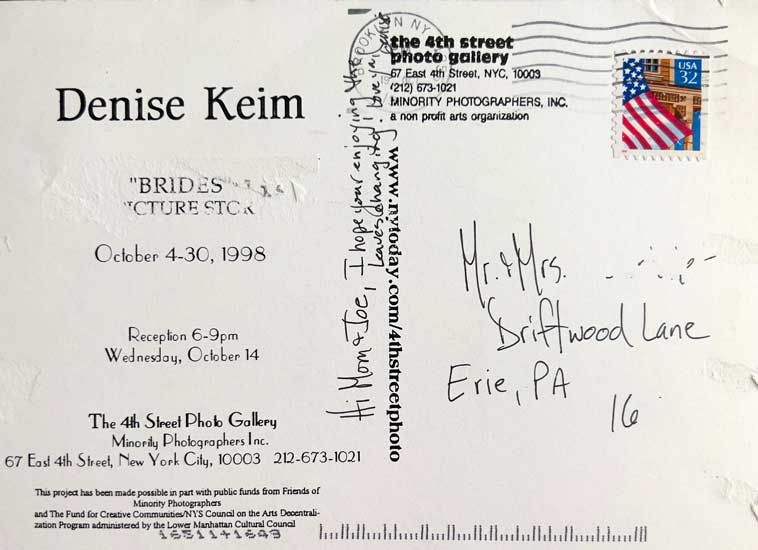 Denise Keim
"BRIDES"
October 4-30, 1998
Reception 6-9pm
Wednesday, October 14
The 4th Street Photo Gallery
Minority Photographers Inc.
67 East 4th Street, New York City, 10003 212-673-1021
This project has been made possible in part with public funds from Friends of
Minority Photographers
and The Fund for Creative Communities/NYS Council on the Arts Decentrali-
zation Program administered by the Lower Manhattan Cultural Council
Hi Mom & Joe, I hope your enjoying the
leaves changing! Love ya, Denise
www.nytoday.com/4thstreetphoto
NY
the 4th street
photo gallery
67 East 4th Street, NYC, 10003
(212) 673-1021
MINORITY PHOTOGRAPHERS, INC.
a non profit arts organization
USA
32
Mr. & Mrs.
Driftwood Lane
Erie, PA
16